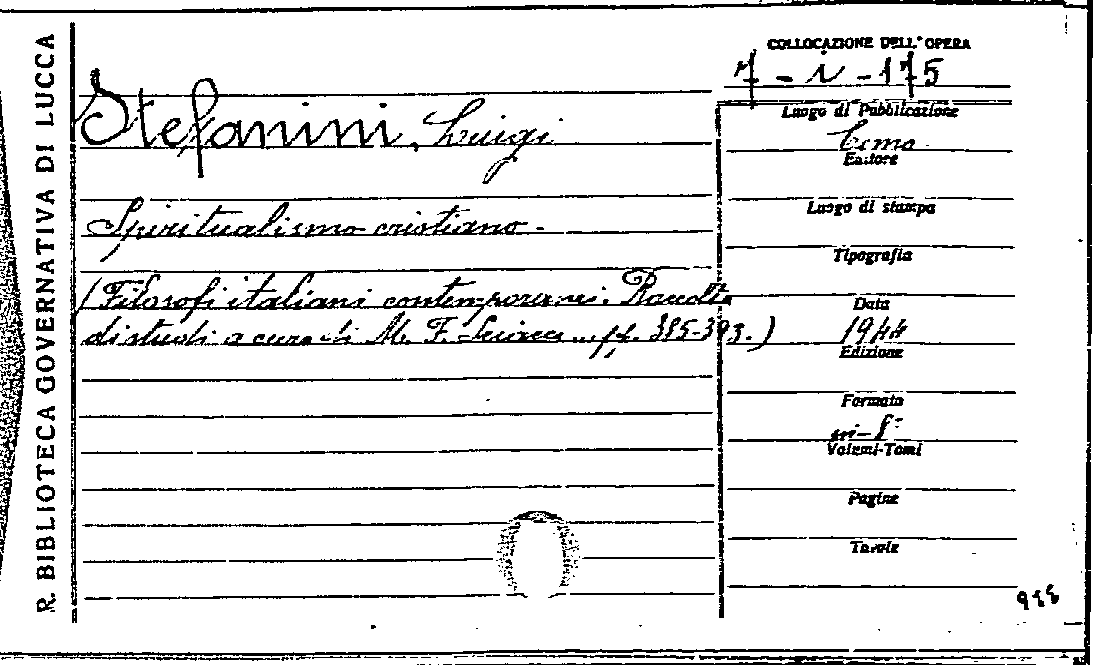 R. BIBLIOTECA GOVERNATIVA DI LUCCA
COLLOCAZIONE DELL'OPERA
7 - i - 175
Stefanini, Luigi
Spiritualismo cristiano.
(Filosofi italiani contemporanei. Raccolta
di studi a cura di M. F. Sciacca pp. 385-393.)
Luogo di Pubblicazione
Como
Editore
Luogo di stampa
Tipografia
Data
1944
Edizione
Formato
in-8°
Volumi-Tomi
Pagine
Tavole